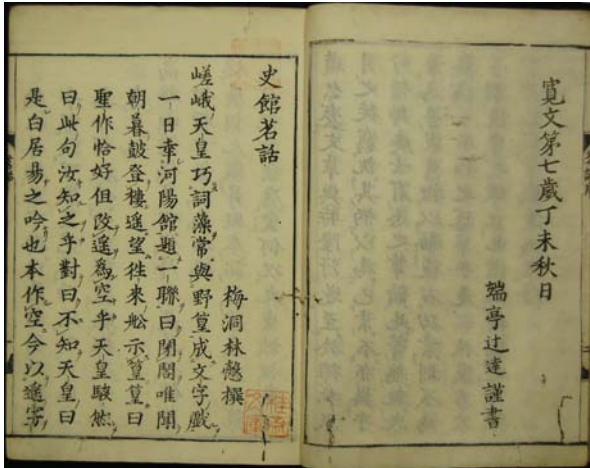 寛文第七歳丁未秋日
端亭辻達謹書
史館茗話
梅洞林愨撰
嵯峨天皇巧詞藻常與野篁成文字戲
一日幸河陽館題一聯曰閉閣唯聞
朝暮鼓登樓遥望徃來舩示篁篁曰
聖作恰好但改遥爲空乎天皇駭然
曰此句汝知之乎對曰不知天皇曰
是白居易之吟也本作空今以遥字